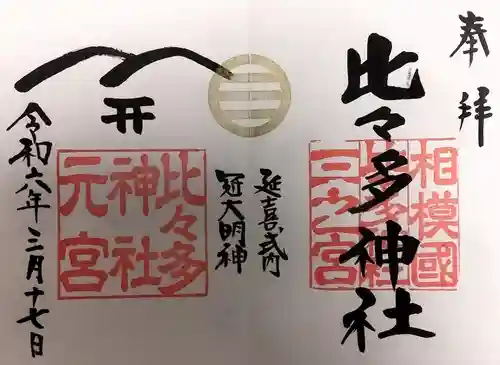 奉拝
比々多神社
相模國
比々多神社
三之宮
延喜式内
冠大明神
比々多
神社
元宮
令和六年三月十七日